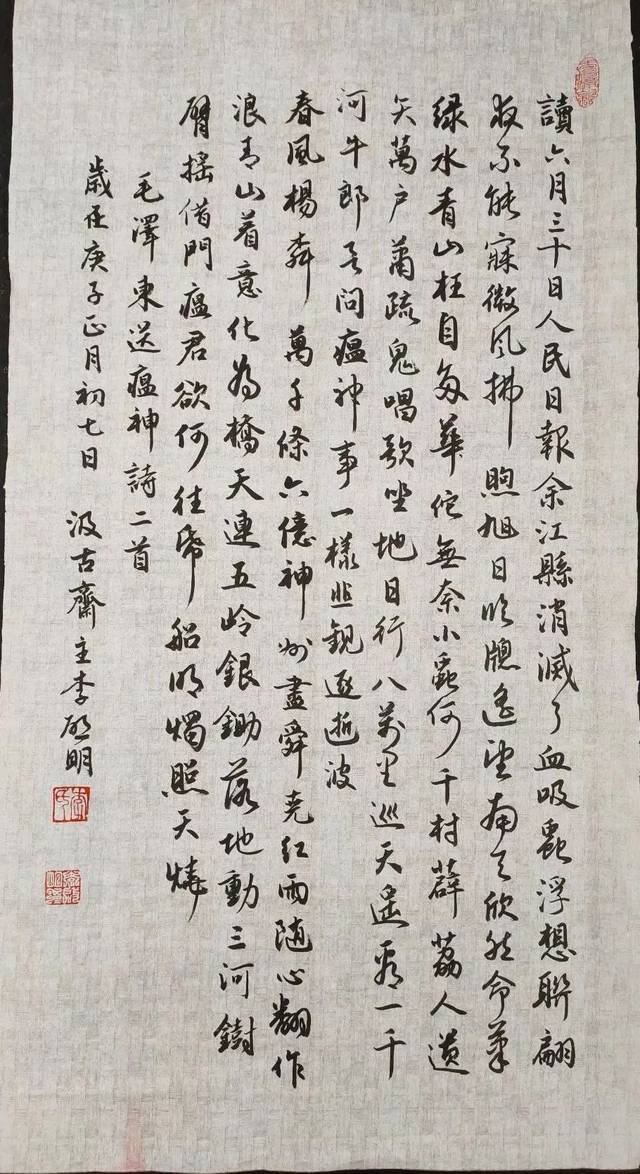 讀六月三十日人民日報余江縣消滅了血吸蟲浮想聯翩
夜不能寐微風拂煦旭日臨牕遙望南天欣然命筆
綠水青山枉自多華佗無奈小蟲何千村薜荔人遺
矢萬户蕭疏鬼唱歌坐地日行八萬里巡天遥看一千
河牛郎問瘟神事一樣悲歡逐逝波
春風楊柳萬千條六億神州盡舜堯紅雨隨心翻作
浪青山着意化為橋天連五岭銀鋤落地動三河鐵
臂摇借門瘟君欲何往紙船明燭照天燒
毛澤東送瘟神詩二首
歲在庚子正月初七日 汲古齋主李啟明